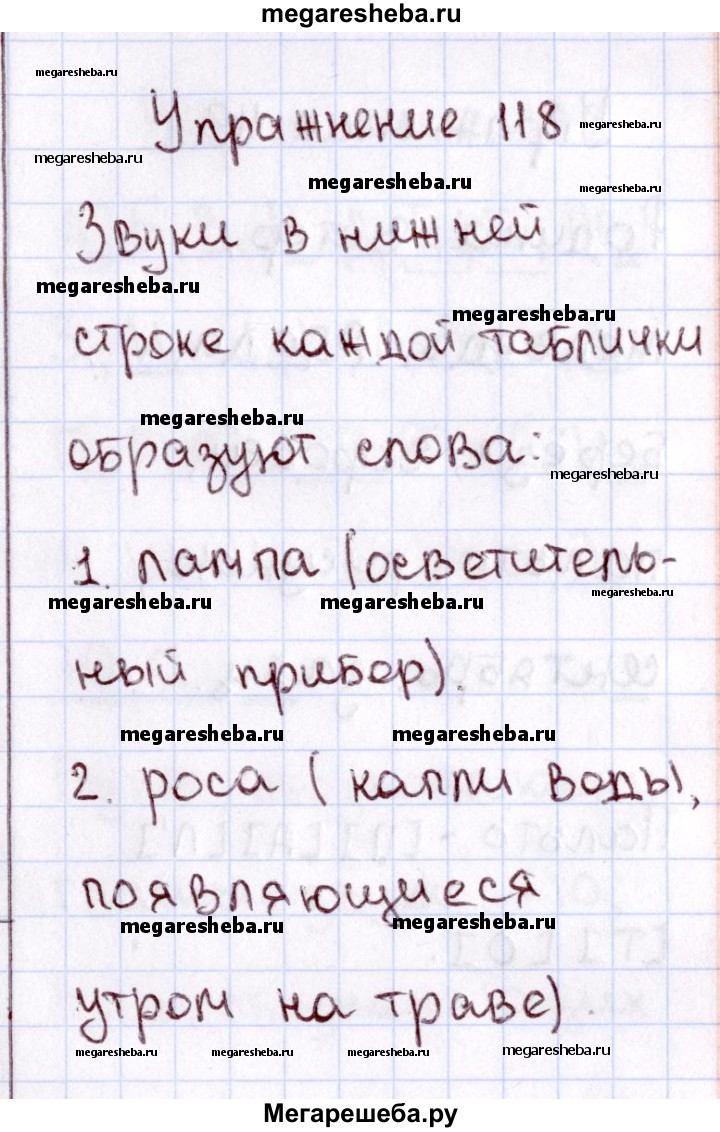 megaresheba.ru
megaresheba.ru
Упражнение 118
megaresheba.ru
megaresheba.ru
megaresheba.ru
megaresheba.ru
Звуки в нижней
megaresheba.ru
megaresheba.ru
строке каждой таблички
megaresheba.ru
образуют слова:
megaresheba.ru
1. лампа (осветитель-
megaresheba.ru megaresheba.ru megaresheba.ru
ный прибор).
megaresheba.ru megaresheba.ru
2. роса (капли воды,
появляющиеся
megaresheba.ru megaresheba.ru
утром на траве).
megaresheba.ru megaresheba.ru megaresheba.ru megaresheba.ru
Мегарешеба.ру